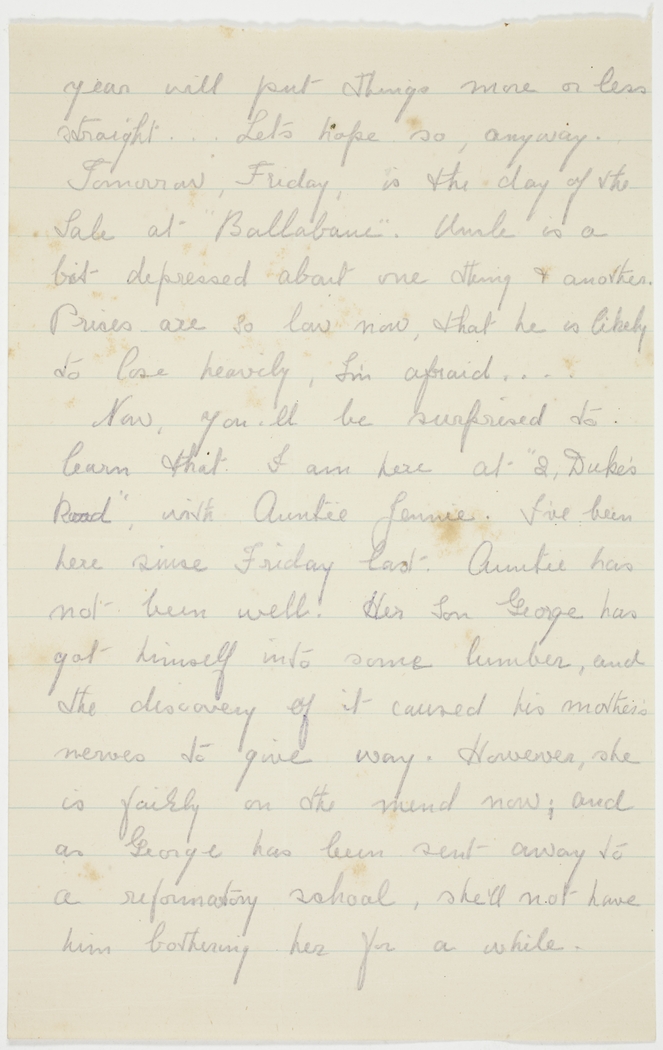 year will put things more or less
straight . . . Let's hope so, anyway.
Tomorrow, Friday, is the day of the
Sale at "Ballabane". Uncle is a
bit depressed about one thing & another.
Prices are so low now, that he is likely
to lose heavily, I'm afraid . . . .
Now, you'll be surprised to
learn that I am here at "2, Duke's
Road", with Auntie Jennie. I've been
here since Friday last. Auntie has
not been well. Her Son George has
got himself into some lumber, and
the discovery of it caused his mother's
nerves to give way. However, she
is fairly on the mend now; and
as George has been sent away to
a reformatory school, she'll not have
him bothering her for a while.